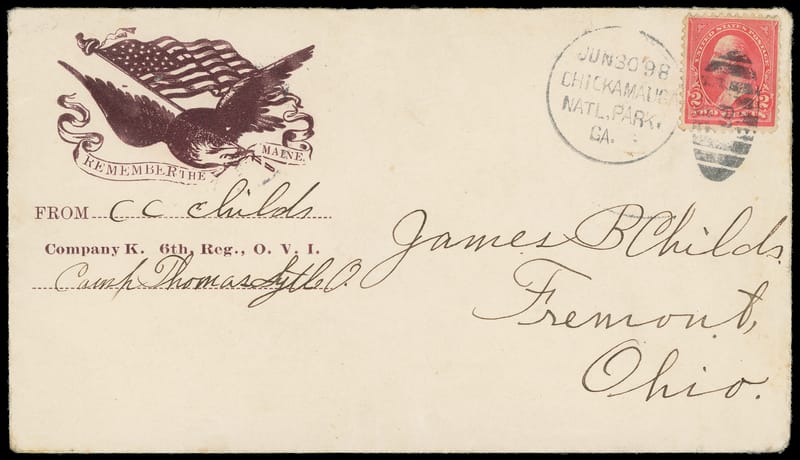 REMEMBER THE MAINE.
FROM C C Childs
Company K. 6th, Reg., O. V. I.
Camp Thomas Lytle O.
JUN 30 '98
CHICKAMAUGA
NATL. PARK.
GA.
UNITED STATES POSTAGE
2 2
James B Childs
Fremont,
Ohio.